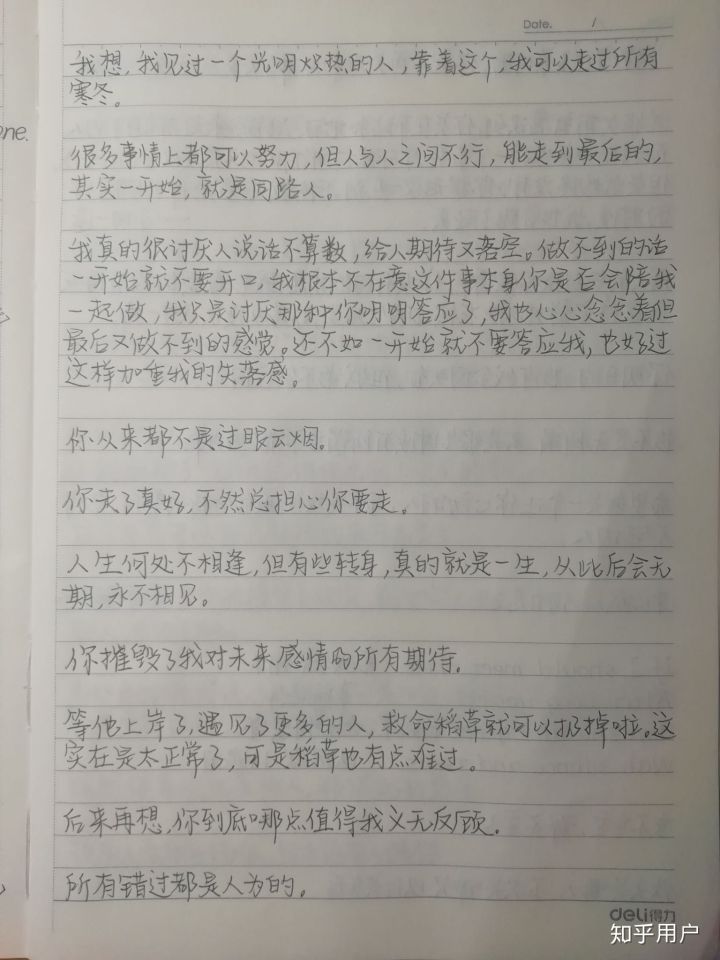 Date.      /
one.
我想，我见过一个光明炽热的人，靠着这个，我可以走过所有
寒冬。
很多事情上都可以努力，但人与人之间不行，能走到最后的，
其实一开始，就是同路人。
我真的很讨厌人说话不算数，给人期待又落空。做不到的话
一开始就不要开口，我根本不在意这件事本身你是否会陪我
一起做，我只是讨厌那种你明明答应了，我也心心念念着但
最后又做不到的感觉。还不如一开始就不要答应我，也好过
这样加重我的失落感。
你从来都不是过眼云烟。
你走了真好，不然总担心你要走。
人生何处不相逢，但有些转身，真的就是一生，从此后会无
期，永不相见。
你摧毁了我对未来感情的所有期待。
等他上岸了，遇见了更多的人，救命稻草就可以扔掉啦。这
实在是太正常了，可是稻草也有点难过。
后来再想，你到底哪点值得我义无反顾。
所有错过都是人为的。
deli得力
知乎用户